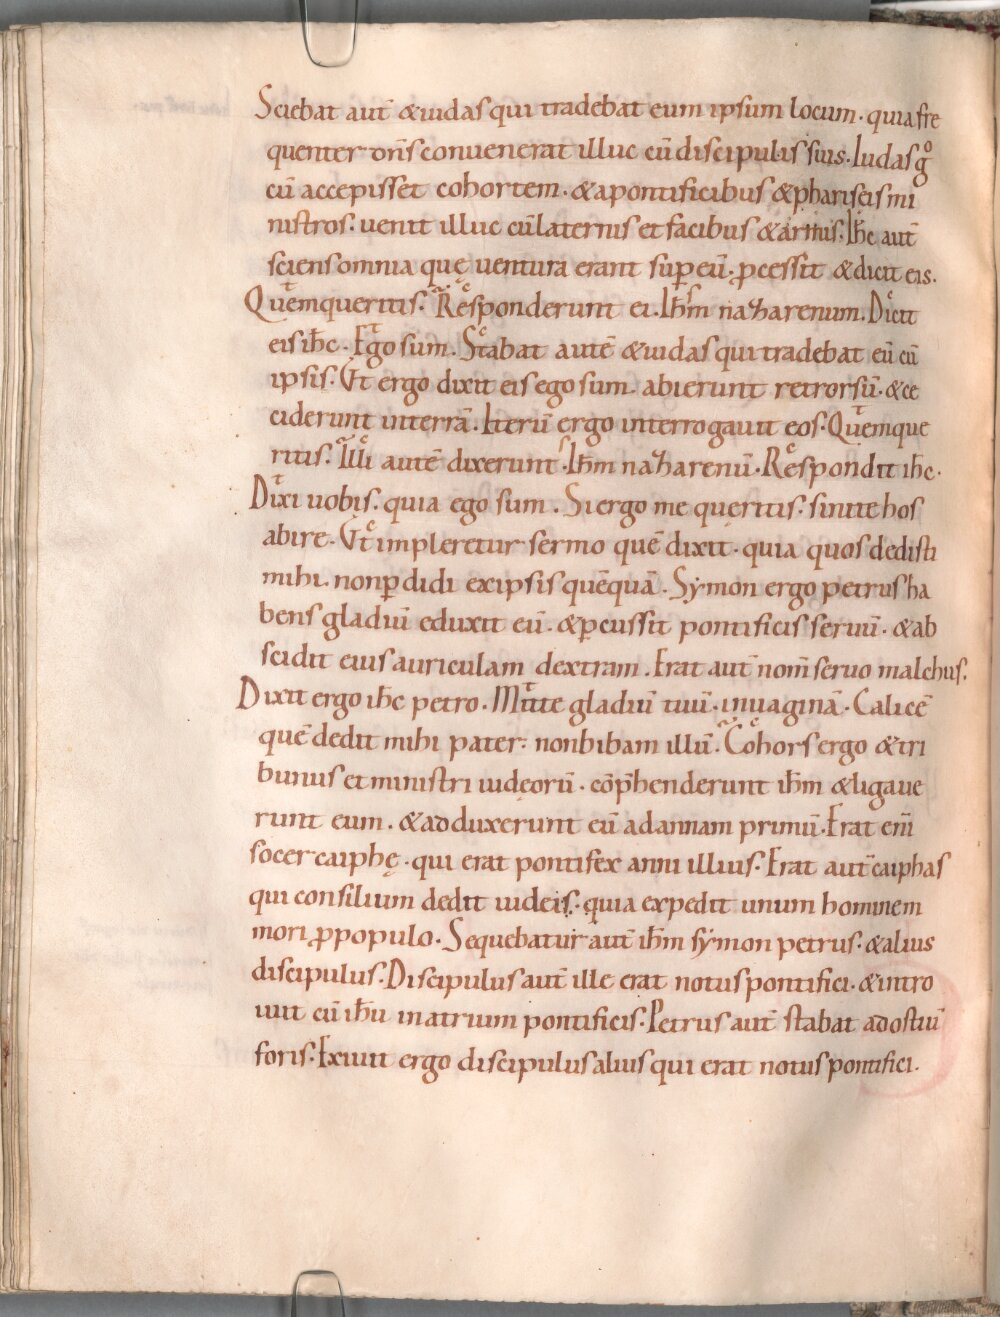 Sciebat aut̄ & iudas qui tradebat eum ipsum locum. quia fre
quenter dn̄s convenerat illuc cū discipulis suis. Iudas gͦ
cū accepisset cohortem. & a pontificibus & phariseis mi
nistros. venit illuc cū laternis et facibus & armis. Ih̄c aut̄
sciens omnia quę ventura erant sup̱ eū. ꝓcessit & dicit eis.
Quemqueritis. Responderunt ei. Ih̄m naZarenum. Dicit
eis ih̄c. Ego sum. Stabat autē & iudas qui tradebat eū cū
ipsis. Ut ergo dixit eis ego sum. abierunt retrorsū. & ce
ciderunt in terrā. Iterū ergo interrogavit eos. Quemque
ritis. Illi autē dixerunt. Ih̄m naZarenū. Respondit ih̄c.
Dixi vobis. quia ego sum. Si ergo me queritis. sinite hos
abire. Ut impleretur sermo quē dixit. quia quos dedisti
mihi. non ꝑdidi ex ipsis quēquā. Symon ergo petrus ha
bens gladiū eduxit eū. & ꝑcussit pontificis servū. & ab
scidit eius auriculam dextram. Erat aut̄ nom̄ servo malchus.
Dixit ergo ih̄c petro. Mitte gladiū tuū. in vaginā. Calicē
quē dedit mihi pater. non bibam illū. Cohors ergo & tri
bunus et ministri iudeorū. cōp̄henderunt ih̄m & ligave
runt eum. & adduxerunt eū ad annam primū. Erat enī
socer caiphę. qui erat pontifex anni illius. Erat aut̄ caiphas
qui consilium dedit iudeis. quia expedit unum hominem
mori ꝓ populo. Sequebatur aut̄ ih̄m symon petrus. & alius
discipulus. Discipulus aut̄ ille erat notus pontifici. & intro
ivit cū ih̄u in atrium pontificis. Petrus aut̄ stabat ad ostiū
foris. Exivit ergo discipulus alius qui erat notus pontifici.